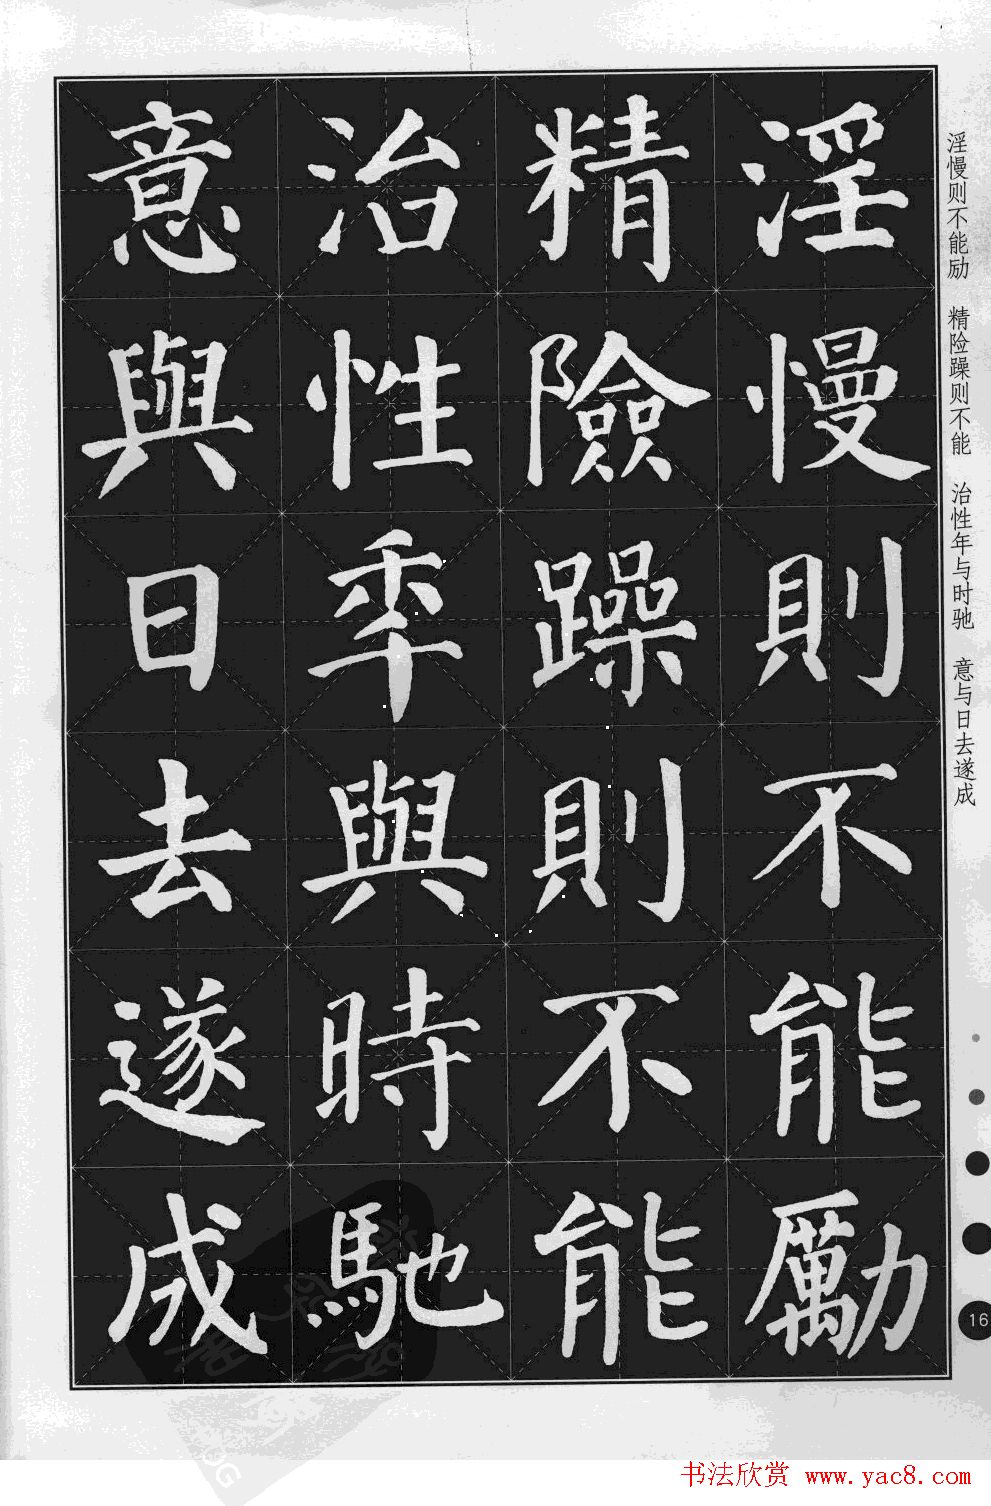 淫慢則不能勵
精險躁則不能
治性年與時馳
意與日去遂成
淫慢则不能励 精险躁则不能 治性年与时驰 意与日去遂成
16
书法欣赏 www.yac8.com